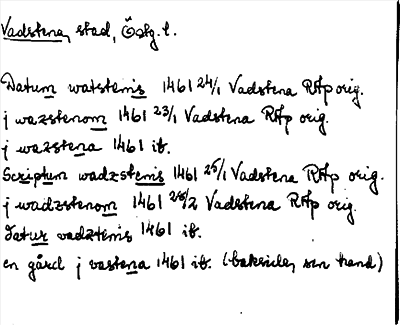 Vadstena, stad, Östg. l.
Datum watstenis 1461 24/1 Vadstena RAp orig.
j wazstenom 1461 23/1 Vadstena RAp orig.
j wazstena 1461 ib.
Scriptum wadzstenis 1461 25/1 Vadstena RAp orig.
j wadzstenom 1461 26/2 Vadstena RAp orig.
Datur vadztenis 1461 ib.
en gård j vastena 1461 ib. (baksida, sen hand)